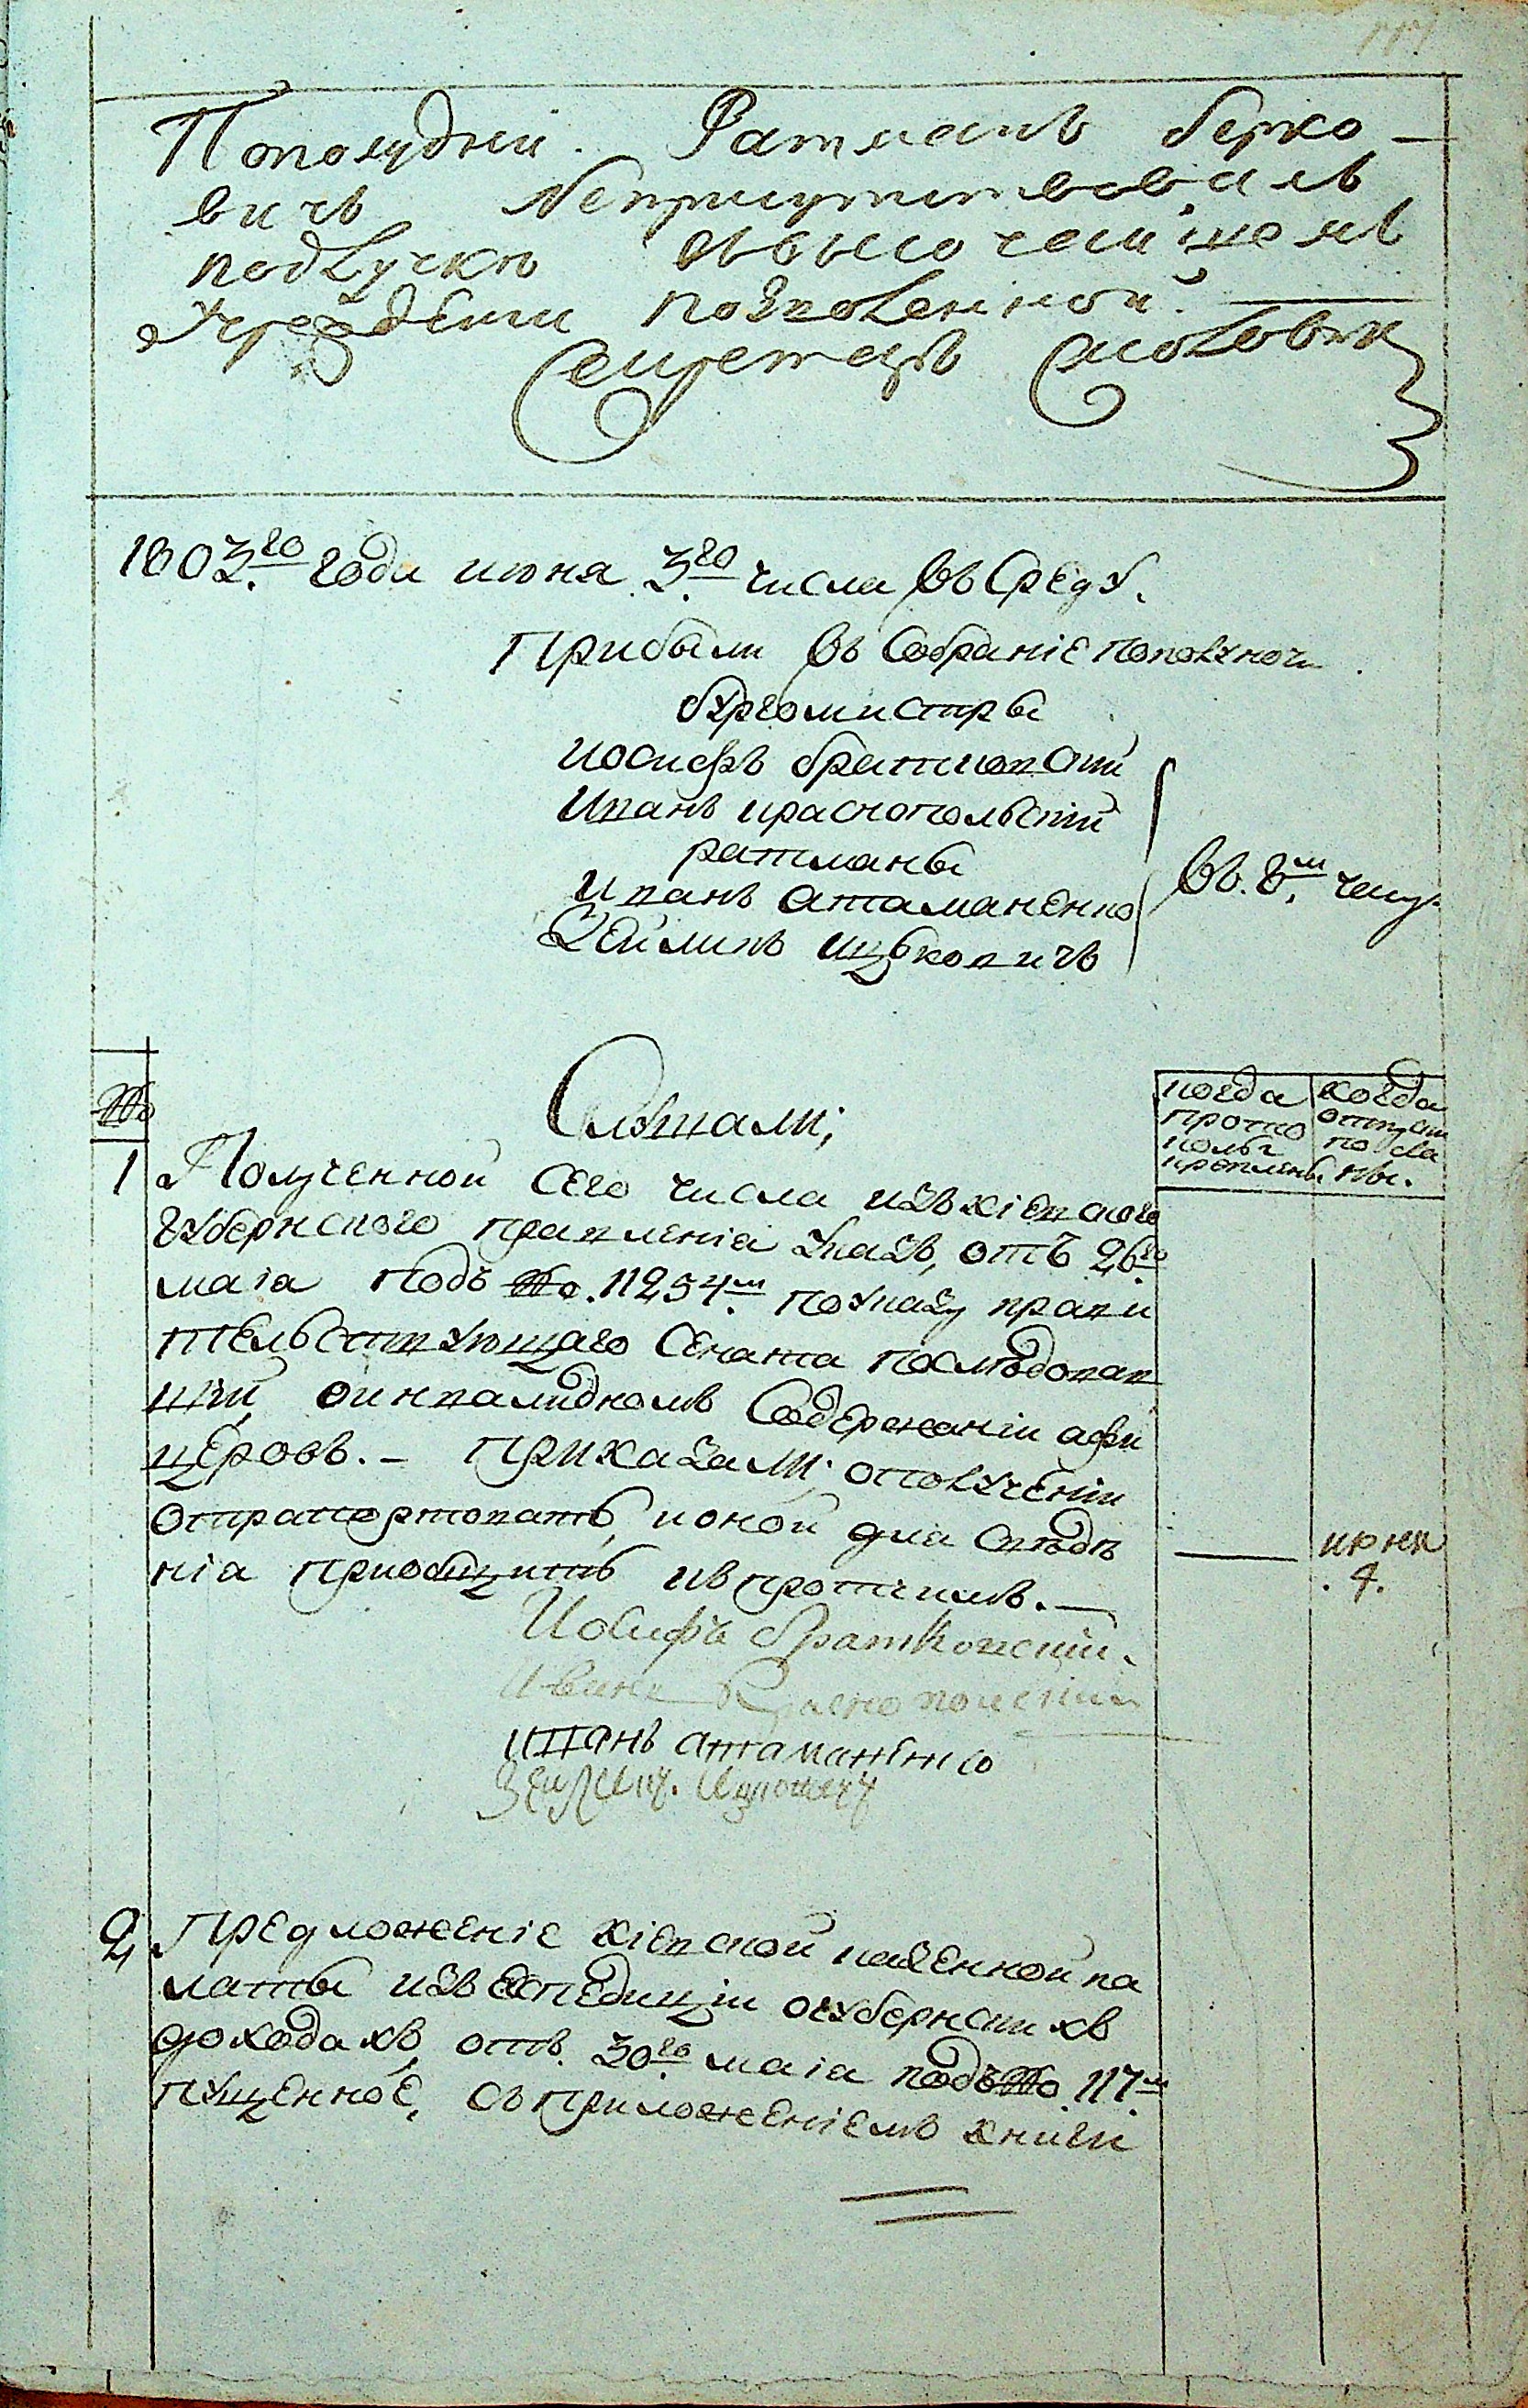 Пополудни. Ратманъ Берко-
вичъ Неприсутствовалъ
поотлучкѣ въвысочайшемъ
Учреждении позволенной.
Секретарь Соловѣй
1803го года июня 3го числа въ Среду.
Прибыли въ Собраніе пополуночи
бургомистры
иосифъ братковскій
Иванъ краснопольскій
ратманы
иванъ атаманенко
Зеймикъ ицковичъ
въ. 8м. часу
№
Слушали;
когда прото колы крѣплены.
когда отпуски посла ны.
1 Полученной Сего числа изъ кіевского
Губернского правленіа Указъ, отъ 26го
маіа подъ №. 11254м. поуказу прави
тельствующаго Сената послѣдовав
шій оинвалидномъ Содержаніи афи
церовъ. - Приказали; ополученіи
отрапортовать, ионой для свѣдѣ
ніа приобщить къ протчимъ. —
июня
. 4.
Иосифъ братковскій.
Иванъ Краснополскій
иванъ атаманенко
2 Предложеніе кіевской казенной па
латы изъ експедиціи огубернскихъ
доходахъ, отъ. 30го маіа подъ №. 117м.
пущенное, съ приложеніемъ книги